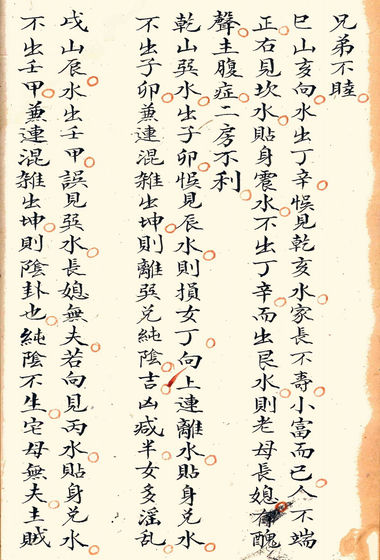 兄弟不睦
巳山亥向水出丁辛悮見乾亥水家長不壽小富而已人不端
正右見坎水貼身震水不出丁辛而出艮水則老母長媳有醜
聲主腹症二房不利
乾山巽水出子卯悮見辰水則損女丁向上連離水貼身兌水
不出子卯兼連混雜出坤則離巽兌純陰吉凶咸半女多淫乱
戌山辰水出壬甲誤見巽水長媳無夫若向見丙水貼身兌水
不出壬甲兼連混雜出坤則陰卦也純陰不生宅母無夫主賊